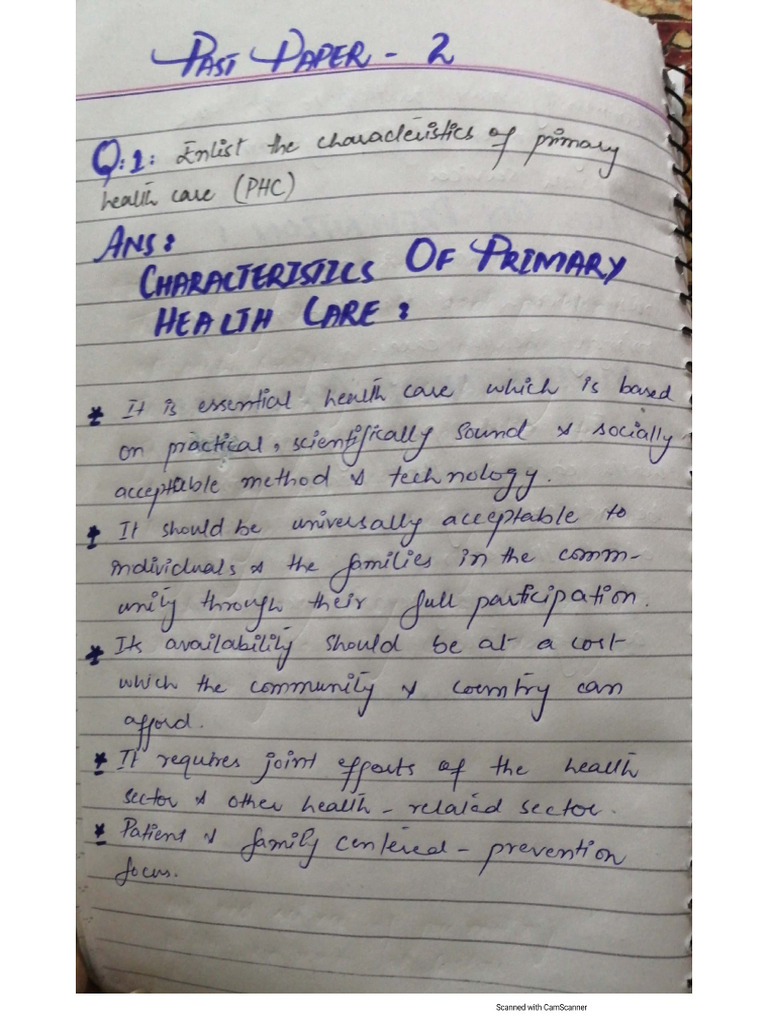 PAST PAPER - 2
Q:1: Enlist the characteristics of primary
health care (PHC)
ANS:
CHARACTERISTICS OF PRIMARY
HEALTH CARE:
* It is essential health care which is based
on practical, scientifically sound & socially
acceptable method & technology.
* It should be universally acceptable to
individuals & the families in the comm-
unity through their full participation.
* Its availability should be at a cost
which the community & country can
afford.
* It requires joint efforts of the health
sector & other health-related sector.
* Patient & family centered - prevention
focus.
Scanned with CamScanner